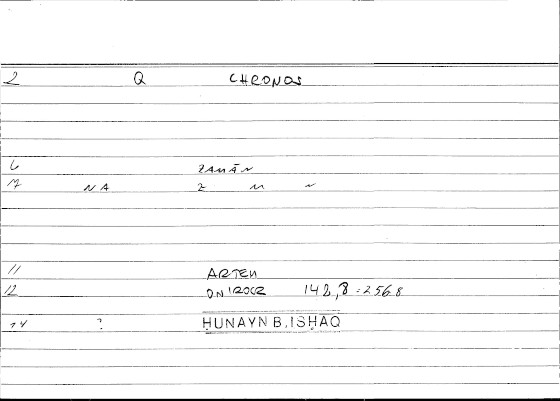 2 Q CHRONOS
6 ZAMĀN
17 NA Z M N
11 ARTEM
12 ONIROCR 142,8 : 256.8
14 ? ḤUNAYN B. ISḤAQ